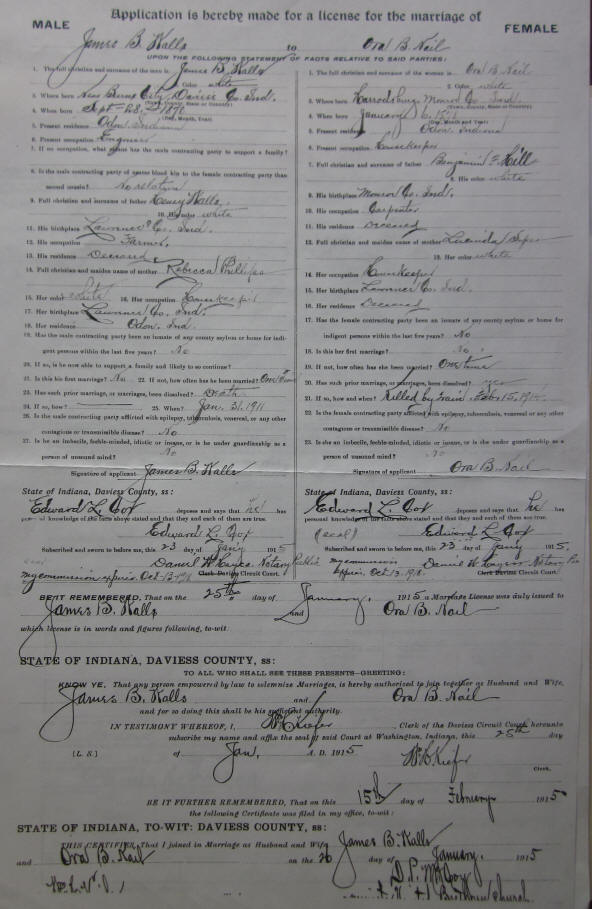 Application is hereby made for a license for the marriage of
MALE
FEMALE
James B. Walls to Ora B. Nail
UPON THE FOLLOWING STATEMENT OF FACTS RELATIVE TO SAID PARTIES:
1. The full christian and surname of the man is James B. Walls
2. Color white
3. Where born Daviess Co. Ind.
4. When born Sept-28- 1870
5. Present residence Odon Indiana
6. Present occupation Engineer
7. If no occupation, what means has the male contracting party to support a family?
8. Is the male contracting party of nearer blood kin to the female contracting party than
second cousin? No relation
9. Full christian and surname of father Henry Walls
10. His color white
11. His birthplace Lawrence Co. Ind.
12. His occupation Farmer
13. His residence Deceased
14. Full christian and maiden name of mother Rebecca Phillips
15. Her color white 16. Her occupation Housekeeper
17. Her birthplace Lawrence Co. Ind.
18. Her residence Odon, Ind.
19. Has the male contracting party been an inmate of any county asylum or home for indi-
gent persons within the last five years? No
20. If so, is he now able to support a family and likely to so continue?
21. Is this his first marriage? No 22. If not, how often has he been married? One Time
23. Has such prior marriage, or marriages, been dissolved? Death
24. If so, how? 25. When? Jan. 31, 1911
26. Is the male contracting party afflicted with epilepsy, tuberculosis, venereal, or any other
contagious or transmissible disease? No
27. Is he an imbecile, feeble-minded, idiotic or insane, or is he under guardianship as a
person of unsound mind? No
Signature of applicant James B. Walls
1. The full christian and surname of the woman is Ora B. Nail
2. Color white
3. Where born Harrodsburg Monroe Co Ind.
4. When born January 6,
5. Present residence Odon, Indiana
6. Present occupation Housekeeper
7. Full christian and surname of father Benjamin F. Hill
8. His color white
9. His birthplace Monroe Co. Ind.
10. His occupation Carpenter
11. His residence Deceased
12. Full christian and maiden name of mother Lucinda
13. Her color white
14. Her occupation Housekeeper
15. Her birthplace Lawrence Co. Ind.
16. Her residence Deceased
17. Has the female contracting party been an inmate of any county asylum or home for
indigent persons within the last five years? No
18. Is this her first marriage? No
19. If not, how often has she been married? One time
20. Has such prior marriage, or marriages, been dissolved? yes
21. If so, how and when? Killed by train. Feb. 15,
22. Is the female contracting party afflicted with epilepsy, tuberculosis, venereal, or any other
contagious or transmissible disease? No
23. Is she an imbecile, feeble-minded, idiotic or insane, or is she under guardianship as a
person of unsound mind? No
Signature of applicant Ora B. Nail
State of Indiana, Daviess County, ss:
Edward L. deposes and says that he has
personal knowledge of the facts above stated and that they and each of them are true.
Edward L.
Subscribed and sworn to before me, this 23 day of Jany 1915
Daniel Notary Public
my commission expires Oct-13-1918
Clerk Daviess Circuit Court.
State of Indiana, Daviess County, ss:
Edward L. deposes and says that he has
personal knowledge of the facts above stated and that they and each of them are true.
(seal) Edward L.
Subscribed and sworn to before me, this 23 day of Jany 1915.
my commission expires Oct 13-1918. Daniel Notary
Clerk Daviess Circuit Court.
BE IT REMEMBERED, That on the 25th day of January, 1915 a Marriage License was duly issued to
James B. Walls and Ora B. Nail
which license is in words and figures following, to-wit:
STATE OF INDIANA, DAVIESS COUNTY, ss:
TO ALL WHO SHALL SEE THESE PRESENTS—GREETING:
KNOW YE, That any person empowered by law to solemnize Marriages, is hereby authorized to join together as Husband and Wife,
James B. Walls and Ora B. Nail
and for so doing this shall be his sufficient authority.
IN TESTIMONY WHEREOF, I, Kiefer, Clerk of the Daviess Circuit Court hereunto
subscribe my name and affix the seal of said Court at Washington, Indiana, this 25th day
[L. S.] of Jan, A. D. 1915
Kiefer
Clerk.
BE IT FURTHER REMEMBERED, That on this 15th day of February 1915
the following Certificate was filed in my office, to-wit:
STATE OF INDIANA, TO-WIT: DAVIESS COUNTY, ss:
THIS CERTIFIES, That I joined in Marriage as Husband and Wife James B. Walls
and Ora B. Nail on the 26 day of January, 1915
D. P. McCoy
Brethren Church